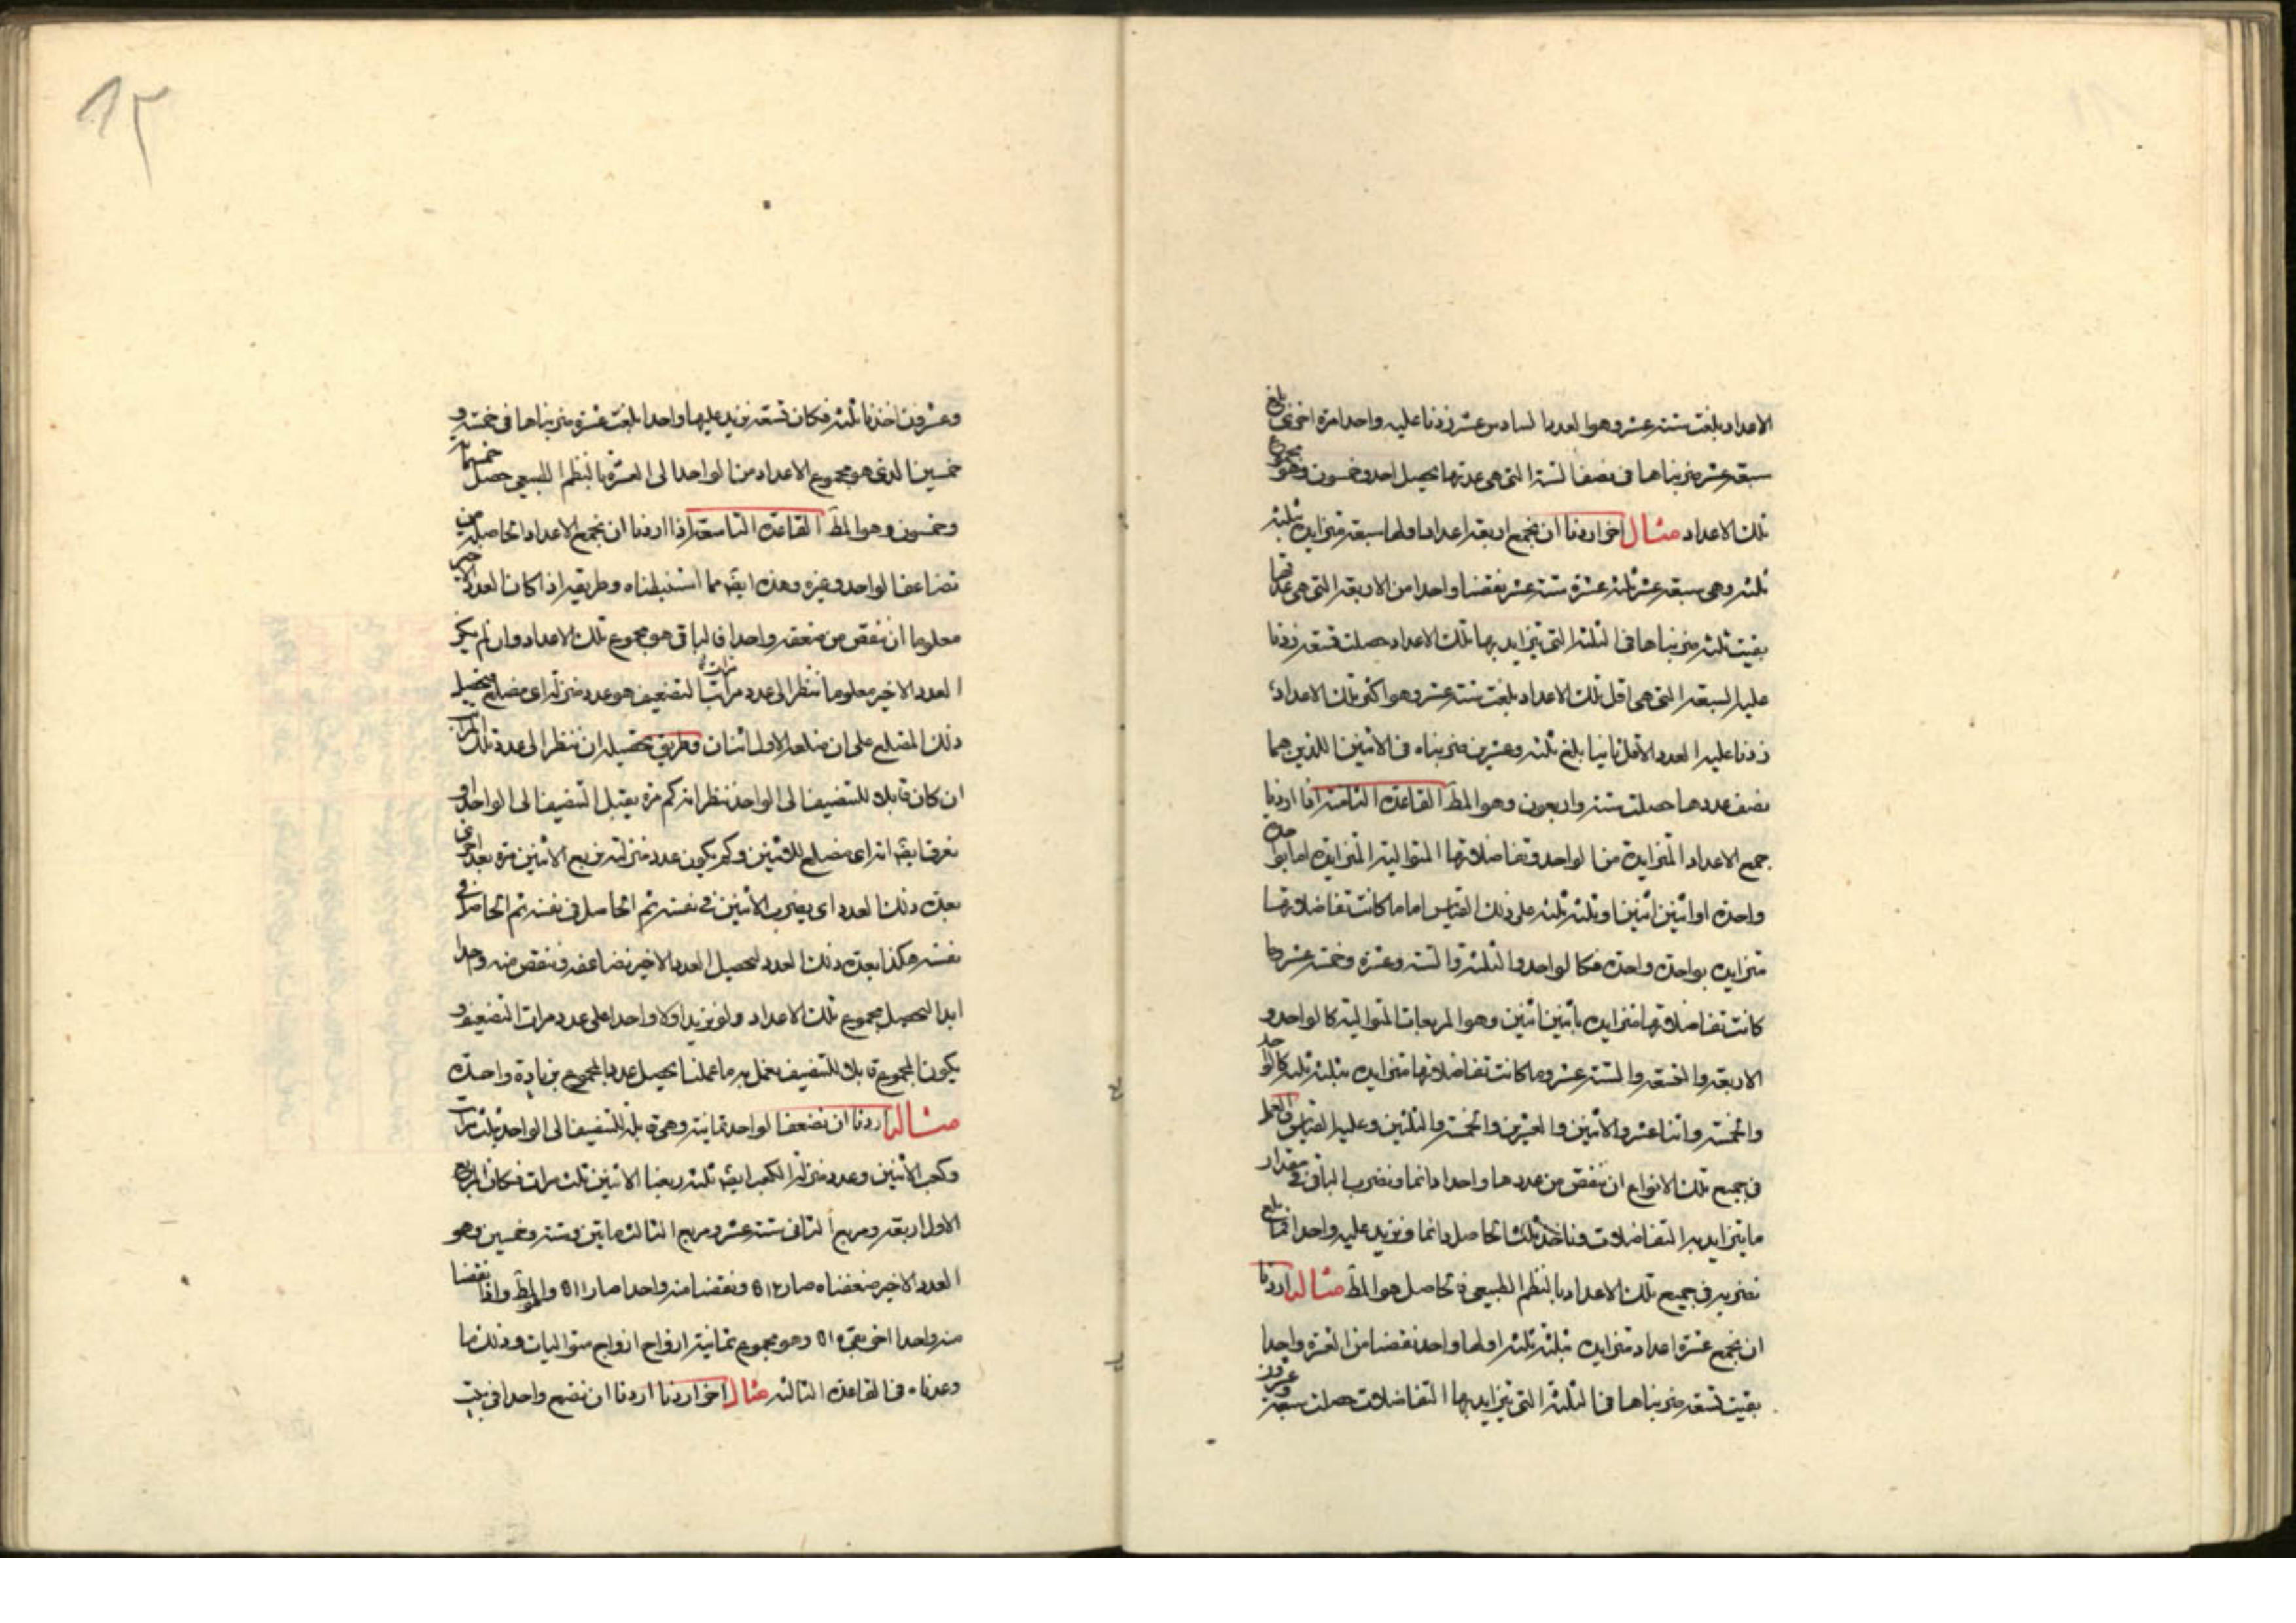 الاعداد بلغت ستة عشر وهو العدد السادس عشر زدنا عليه واحدا مرة اخرى بلغ
سبعة عشر ضربناها فى نصف الستة التى هى عدتها يحصل احد وخمسون وهو مجموع
تلك الاعداد مثال اخر اردنا ان نجمع اربعة اعداد اولها سبعة متزايدة بثلثة
ثلثة وهى سبعة عشرة ثلثة عشر ستة عشر نقصنا واحدا من الاربعة التى هى عدتها
بقيت ثلثة ضربناها فى الثلثة التى تتزايد بها تلك الاعداد حصلت تسعة زدنا
عليها السبعة التى هى اقل تلك الاعداد بلغت ستة عشر وهو اكثر تلك الاعداد
زدنا عليه العدد الاقل ثانيا بلغ ثلثة وعشرين ضربناه فى الاثنين اللذين هما
نصف عددها حصلت ستة واربعون وهو المط القاعدة الثامنة اذا اردنا
جمع الاعداد المتزايدة من الواحد وتفاضلاتها المتوالية المتزايدة اما بواحدة
واحدة او اثنين اثنين او ثلثة ثلثة على ذلك القياس اما ما كانت تفاضلاتها
متزايدة بواحدة واحدة فكالواحد والثلثة والستة وعشرة وخمسة عشر وما
كانت تفاضلاتها متزايدة باثنين اثنين وهو المربعات المتوالية كالواحد و
الاربعة والتسعة والستة عشر وما كانت تفاضلاتها متزايدة بثلثة ثلثة كالواحد
والخمسة واثنا عشر والاثنين والعشرين والخمسة والثلثين وعليه القياس والعمل
فى جميع تلك الانواع ان ننقص من عددها واحدا دائما ونضرب الباقى فى مقدار
ما يتزايد به التفاضلات وناخذ ثلث الحاصل دائما ونزيد عليه واحدا فما بلغ
نضربه فى جميع تلك الاعداد بالنظم الطبيعى فالحاصل هو المط مثاله اردنا
ان نجمع عشرة اعداد متزايدة بثلثة ثلثة اولها واحد نقصنا من العشرة واحدا
بقيت تسعة ضربناها فى الثلثة التى تتزايد بها التفاضلات حصلت سبعة وعشرون
وعشرون اخذنا ثلثه فكان تسعة نزيد عليها واحدا بلغت عشرة ضربناها فى خمسة و
خمسين الذى هو مجموع الاعداد من الواحد الى العشرة بالنظم الطبيعى حصل خمسمائة
وخمسون وهو المط القاعدة التاسعة اذا اردنا ان نجمع الاعداد الحاصلة من
تضاعف الواحد وغيره وهذه ايضا مما استنبطناه وطريقه اذا كان العدد الاخير
معلوما ان ننقص من ضعفه واحدا فالباقى هو مجموع تلك الاعداد وان لم يكن
العدد الاخير معلوما ننظر الى عدد مراتب التضعيف هو عدد منزلة اى مضلع بتحصيل
ذلك المضلع على ان ضلعه الاول اثنان وطريق تحصيله ان ننظر الى عدة تلك المراتب
ان كان قابلا للتنصيف الى الواحد ننظر انه كم مرة يقبل التنصيف الى الواحد او
نعرف ايضا انه اى مضلع للاثنين وكم يكون عدد منزلته نربع الاثنين مرة بعد اخرى
بعدة ذلك العدد اى يضرب الاثنين فى نفسه ثم الحاصل فى نفسه ثم الحاصل فى
نفسه هكذا بعدة ذلك العدد ليحصل العدد الاخير نضاعفه وننقص منه واحدا
ابدا ليحصل مجموع تلك الاعداد ولو نزيد اولا واحدا على عدد مرات التضعيف و
يكون المجموع قابلا للتنصيف نعمل به ما عملنا يحصل عدد المجموع بزيادة واحدة
مثاله اردنا ان نضعف الواحد ثمانية وهى قابلة للتنصيف الى الواحد ثلث مرات
وكعب الاثنين وعدد منزلة الكعب ايضا ثلثة ربعنا الاثنين ثلث مرات فكان المربع
الاول اربعة ومربع الثانى ستة عشر ومربع الثالث مايتين وستة وخمسين وهو
العدد الاخير ضعفناه صار ٥١٢ ونقصنا منه واحدا صار ٥١١ وهو المط واذا نقصنا
منه واحدا اخر بقى ٥١٠ وهو مجموع ثمانية ازواج ازواج متواليات وذلك ما
وعدناه فى القاعدة الثالثة مثال اخر اردنا اردنا ان نضع واحدا فى بيت
١٢